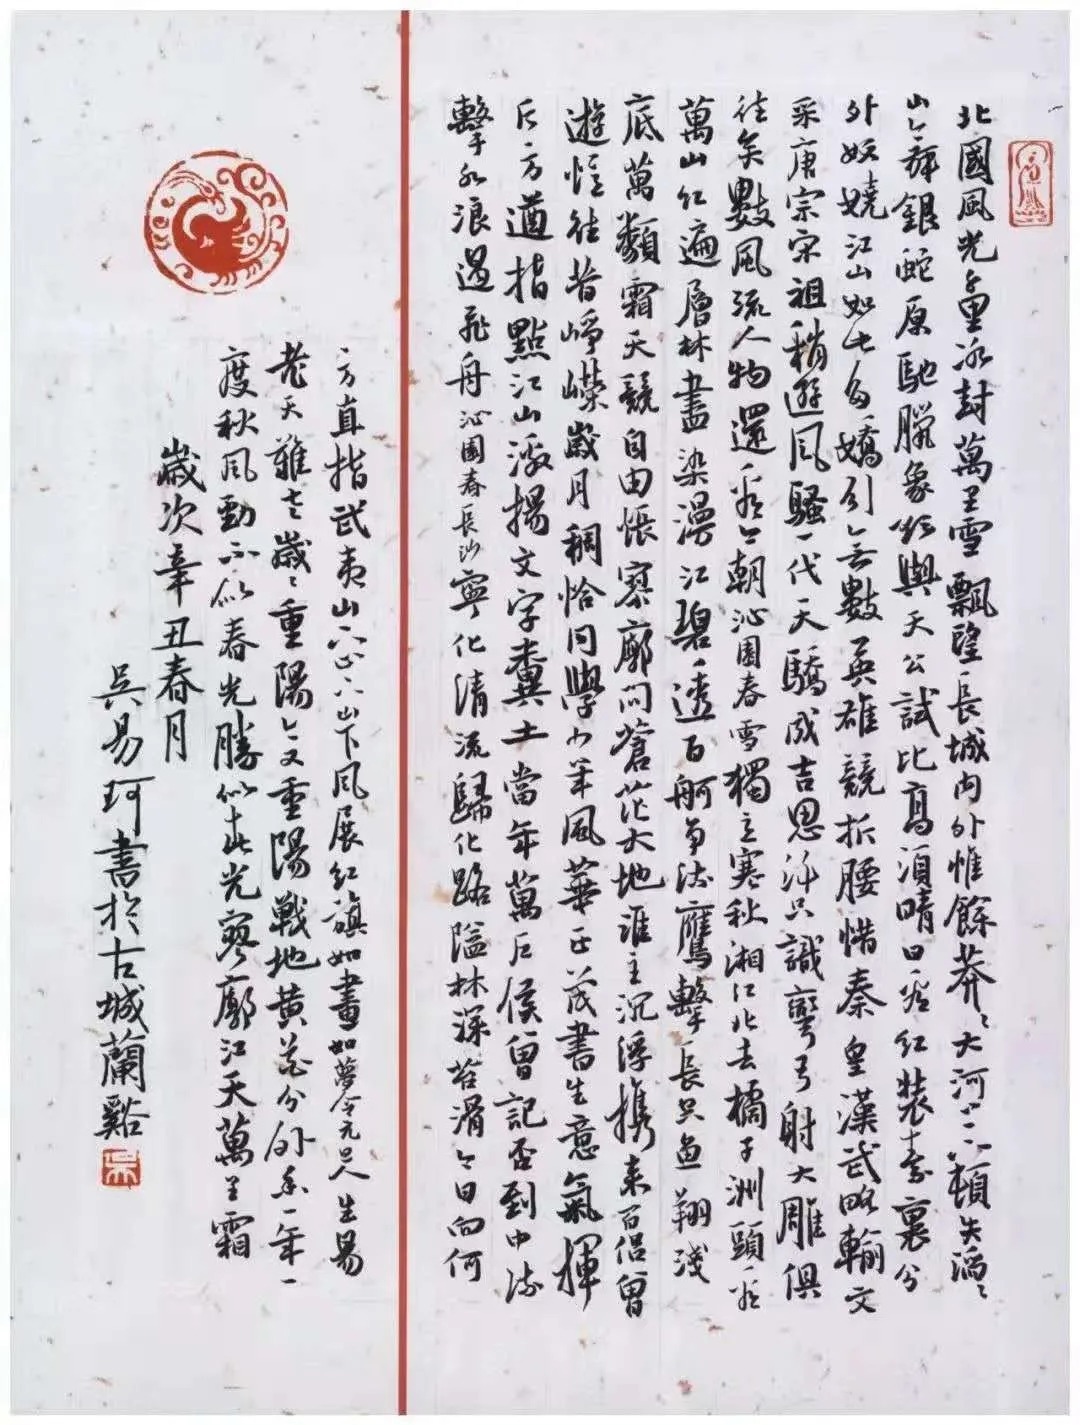 北國風光千里冰封萬里雪飄望長城內外惟餘莽々大河上下頓失滔々
山舞銀蛇原馳臘象欲與天公試比高須晴日看紅裝素裹分
外妖嬈江山如此多嬌引無數英雄競折腰惜秦皇漢武略輸文
采唐宗宋祖稍遜風騷一代天驕成吉思汗只識彎弓射大雕俱
往矣數風流人物還看今朝沁園春雪獨立寒秋湘江北去橘子洲頭看
萬山紅遍層林盡染漫江碧透百舸爭流鷹擊長空魚翔淺
底萬類霜天競自由悵寥廓問蒼茫大地誰主沉浮攜來百侶曾
遊憶往昔崢嶸歲月稠恰同學少年風華正茂書生意氣揮
斥方遒指點江山激揚文字糞土當年萬戶侯曾記否到中流
擊水浪遏飛舟沁園春長沙寧化清流歸化路隘林深苔滑今日向何
方直指武夷山下山下風展紅旗如畫如夢令元旦人生易
老天難老歲々重陽今又重陽戰地黃花分外香一年一
度秋風勁不似春光勝似春光寥廓江天萬里霜
歲次辛丑春月
吳易珂書於古城蘭谿
吳